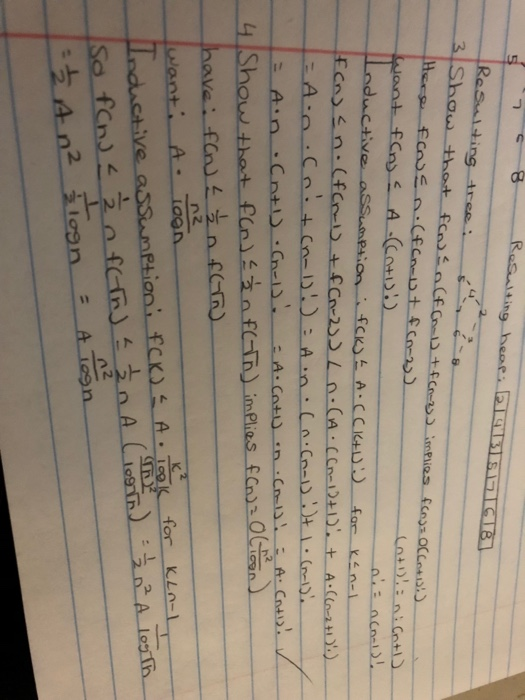 5 7 6 8 Resulting heap: 2 4 3 5 7 6 8
Resulting tree: 2
4 3
5 7 6 8
3 Show that f(n) ≤ n(f(n-1) + f(n-2)) implies f(n) = O((n+1)!)
Here f(n) ≤ n·(f(n-1) + f(n-2))
Want f(n) ≤ A·((n+1)!)
(n+1)! = n!(n+1)
n! = n(n-1)!
Inductive assumption: f(k) ≤ A·((k+1)!) for k ≤ n-1
f(n) ≤ n·(f(n-1) + f(n-2)) < n·(A·((n-1)+1)! + A·((n-2+1)!)
= A·n·(n! + (n-1)!) = A·n·(n·(n-1)!) + 1·(n-1)!
= A·n·(n+1)·(n-1)! = A·(n+1)·n·(n-1)! = A·(n+1)! ✓
4 Show that f(n) ≤ ½ n f(√n) implies f(n) = O(n²/logn)
have: f(n) ≤ ½ n f(√n)
want: A· n²/logn
Inductive assumption: f(k) ≤ A· k²/logk for k ≤ n-1
So f(n) ≤ ½ n f(√n) ≤ ½ n A ((√n)²/log√n) = ½ n² A 1/log√n
= ½ A n² 1/½logn = A n²/logn